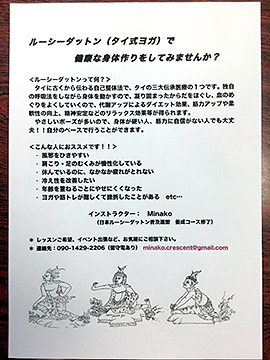 ルーシーダットン（タイ式ヨガ）で
健康な身体作りをしてみませんか？
＜ルーシーダットンって何？＞
タイに古くから伝わる自己整体法で、タイの三大伝承医療の１つです。独自
の呼吸法をしながら身体を動かすので、凝り固まったからだをほぐし、血のめ
ぐりをよくしていくので、代謝アップによるダイエット効果、筋力アップや柔
軟性の向上、精神安定などのリラックス効果等が得られます。
やさしいポーズが多いので、身体が硬い人、筋力に自信がない人でも大丈
夫！！自分のペースで行うことができます。
＜こんな人におススメです！！＞
・ 風邪をひきやすい
・ 肩こり・足のむくみが慢性化している
・ 休んでいるのに、なかなか疲れがとれない
・ 冷え性を改善したい
・ 年齢を重ねるごとにやせにくくなった
・ ヨガや筋トレが難しくて挫折したことがある　etc…
インストラクター：　Minako
（日本ルーシーダットン普及連盟　養成コース修了）
＊ レッスンご希望、イベント出張など、お気軽にご相談下さい。
＊ 連絡先：090-1429-2206（留守電あり）minako.crescent@gmail.com